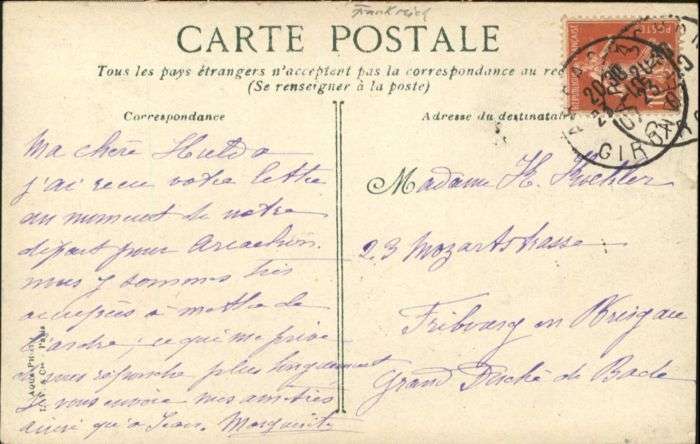 Frankreich
CARTE POSTALE
Tous les pays étrangers n'acceptent pas la correspondance au
(Se renseigner à la poste)
Correspondance
Adresse du destinataire
Ma chère Hulda
j'ai reçu votre lettre
au moment de notre
départ pour Arcachon.
nous y sommes très
occupées à mettre de
l'ordre; ce qui me prive
de vous répondre plus longuement
Je vous envoie mes amitiés
ainsi qu'à Jean. Marguerite
Madame H. Koehler
23 Mozartstrasse
Fribourg en Brisgau
Grand Duché de Bade
GIRONDE